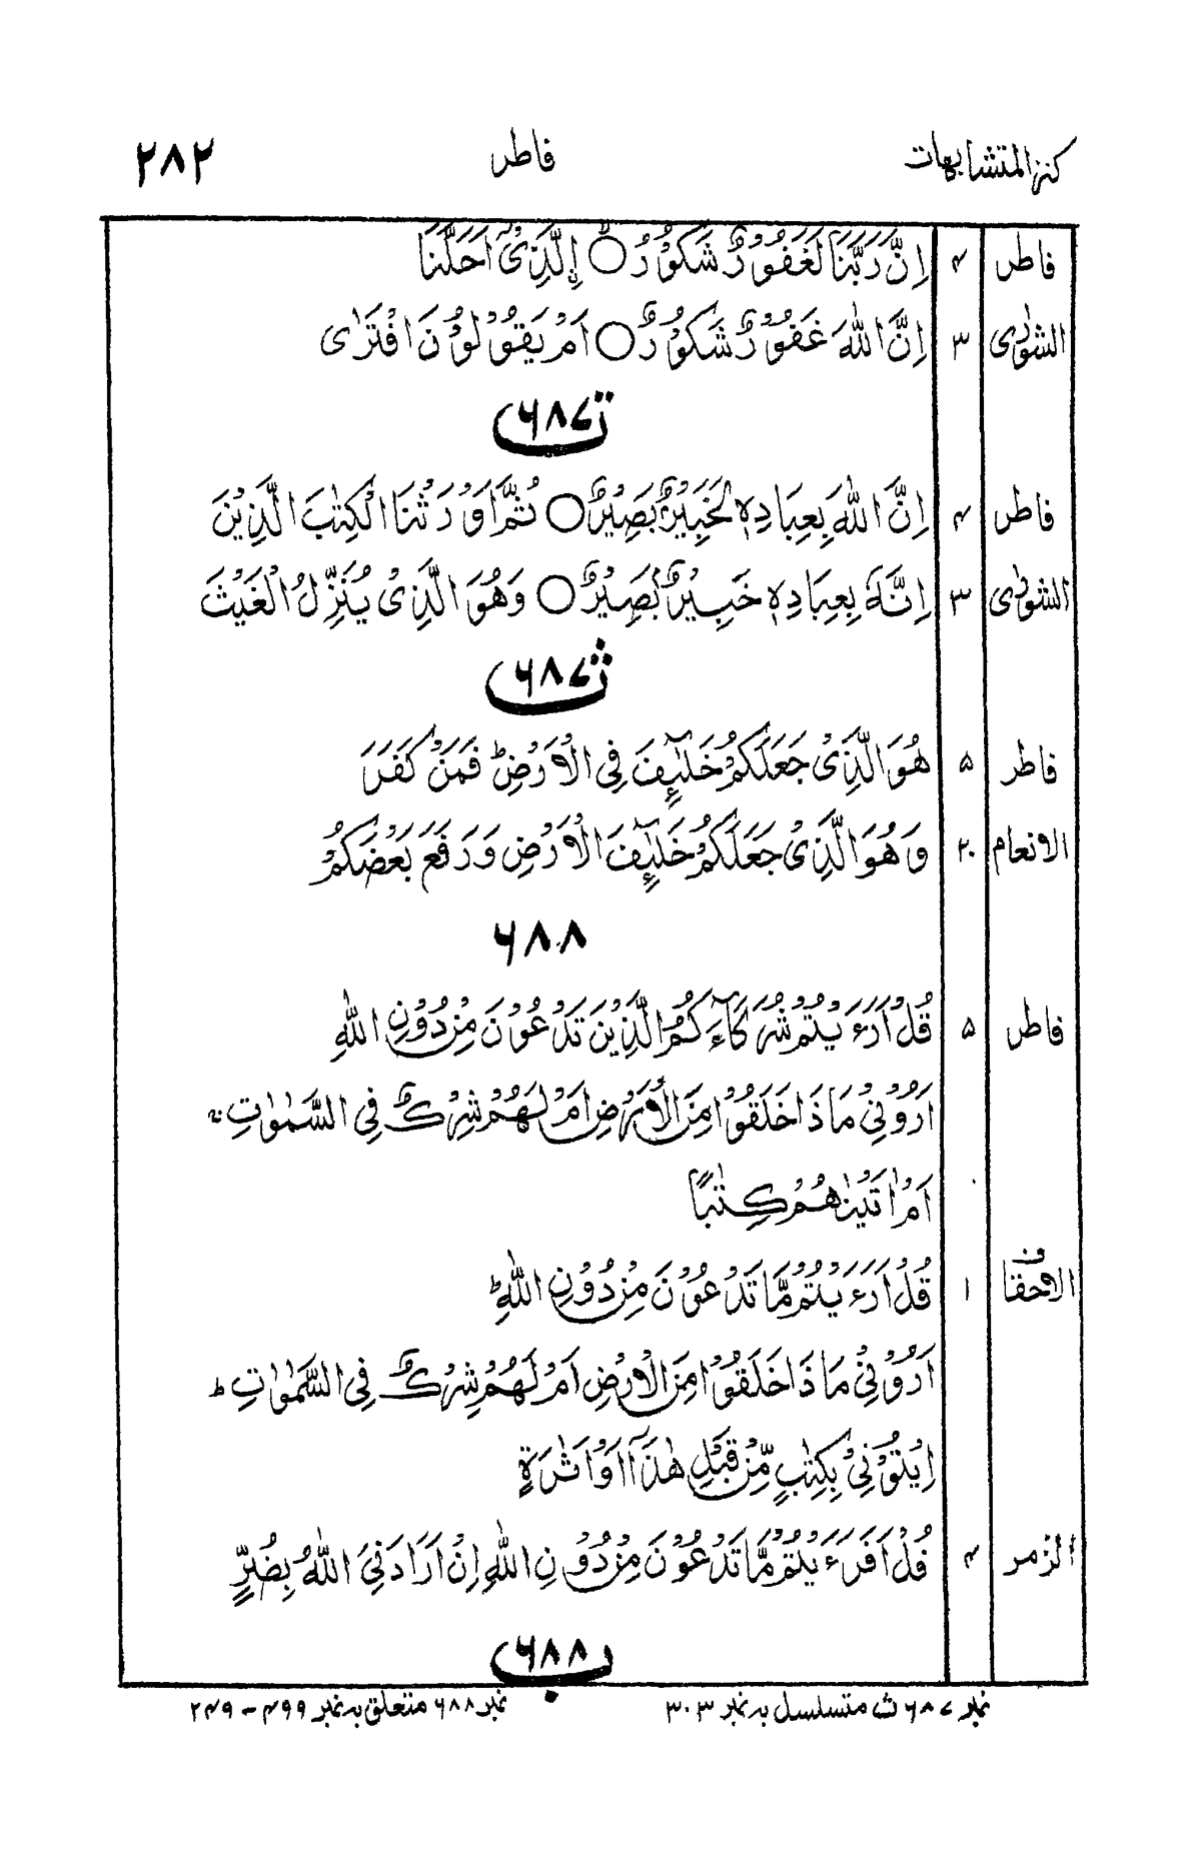 كنز المتشابهات فاطر ٢٨٢
فاطر ۴ اِنَّ رَبَّنَا لَغَفُوْرٌ شَكُوْرُ ۨ○ اۨلَّذِيْۤ اَحَلَّنَا
الشورٰی ٣ اِنَّ اللّٰهَ غَفُوْرٌ شَكُوْرٌ○ اَمْ يَقُوْلُوْنَ افْتَرٰى
۶۸۷ت
فاطر ۴ اِنَّ اللّٰهَ بِعِبَادِهٖ لَخَبِيْرٌۢ بَصِيْرٌ○ ثُمَّ اَوْرَثْنَا الْكِتٰبَ الَّذِيْنَ
الشورٰی ٣ اِنَّهٗ بِعِبَادِهٖ خَبِيْرٌۢ بَصِيْرٌ○ وَهُوَ الَّذِيْ يُنَزِّلُ الْغَيْثَ
۶۸۷ث
فاطر ۵ هُوَ الَّذِيْ جَعَلَكُمْ خَلٰٓئِفَ فِي الْاَرْضِ ؕ فَمَنْ كَفَرَ
الانعام ٢٠ وَهُوَ الَّذِيْ جَعَلَكُمْ خَلٰٓئِفَ الْاَرْضِ وَرَفَعَ بَعْضَكُمْ
۶۸۸
فاطر ۵ قُلْ اَرَءَيْتُمْ شُرَكَآءَكُمُ الَّذِيْنَ تَدْعُوْنَ مِنْ دُوْنِ اللّٰهِ
اَرُوْنِيْ مَاذَا خَلَقُوْا مِنَ الْاَرْضِ اَمْ لَهُمْ شِرْكٌ فِي السَّمٰوٰتِ ۚ
اَمْ اٰتَيْنٰهُمْ كِتٰبًا
الاحقاف ١ قُلْ اَرَءَيْتُمْ مَّا تَدْعُوْنَ مِنْ دُوْنِ اللّٰهِ ؕ
اَرُوْنِيْ مَاذَا خَلَقُوْا مِنَ الْاَرْضِ اَمْ لَهُمْ شِرْكٌ فِي السَّمٰوٰتِ ؕ
اِيْتُوْنِيْ بِكِتٰبٍ مِّنْ قَبْلِ هٰذَآ اَوْ اَثٰرَةٍ
الزمر ۴ قُلْ اَفَرَءَيْتُمْ مَّا تَدْعُوْنَ مِنْ دُوْنِ اللّٰهِ اِنْ اَرَادَنِيَ اللّٰهُ بِضُرٍّ
۶۸۸ب
نمبر ۶۸۷ث متسلسل بہ نمبر ۳۰۳ نمبر ۶۸۸ متعلق بہ نمبر ۴۹۹ - ۲۴۹